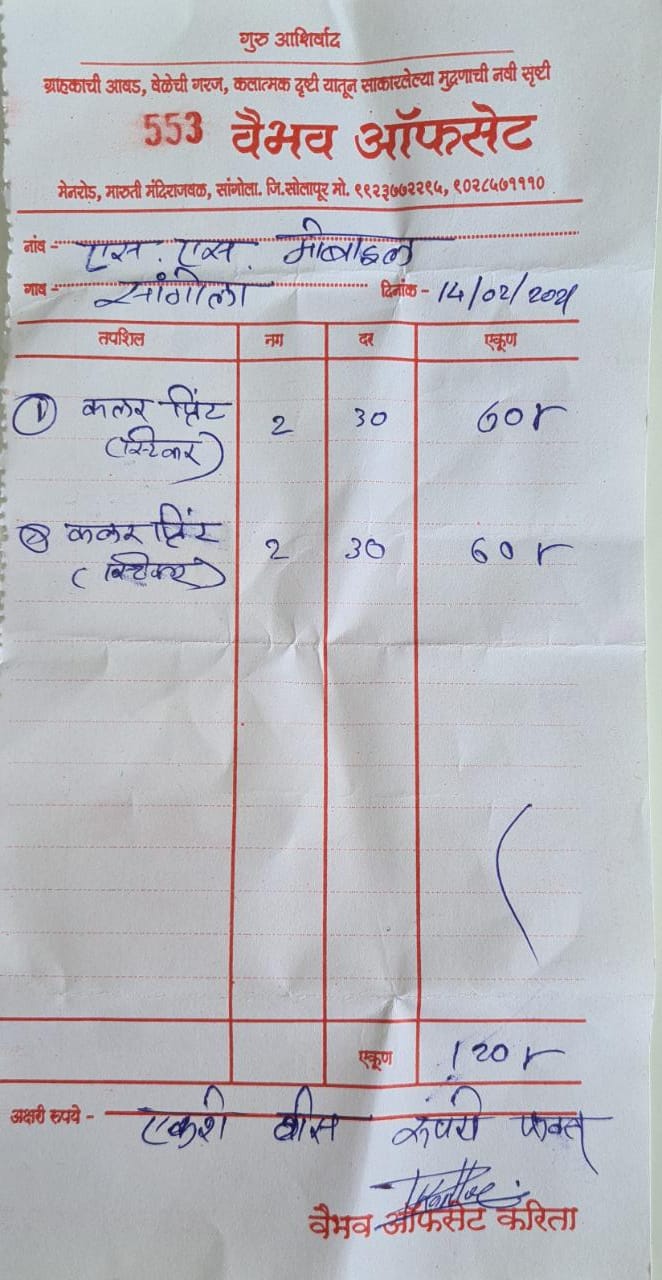 गुरु आशिर्वाद
ग्राहकाची आवड, वेळेची गरज, कलात्मक दृष्टी यातून साकारलेल्या मुद्रणाची नवी सृष्टी
553 वैभव ऑफसेट
मेनरोड, मारुती मंदिराजवळ, सांगोला. जि.सोलापूर मो. ९९२३७७२२९५, ९०२८५७१११०
नांव - एस. एस. मोबाइल
गाव - सांगोला दिनांक - 14/02/2021
तपशिल नग दर एकूण
① कलर प्रिंट 2 30 60 r
(स्टिकर)
② कलर प्रिंट 2 30 60 r
(स्टिकर)
एकूण 120 r
अक्षरी रुपये - एकशे वीस रुपये फक्त
वैभव ऑफसेट करिता